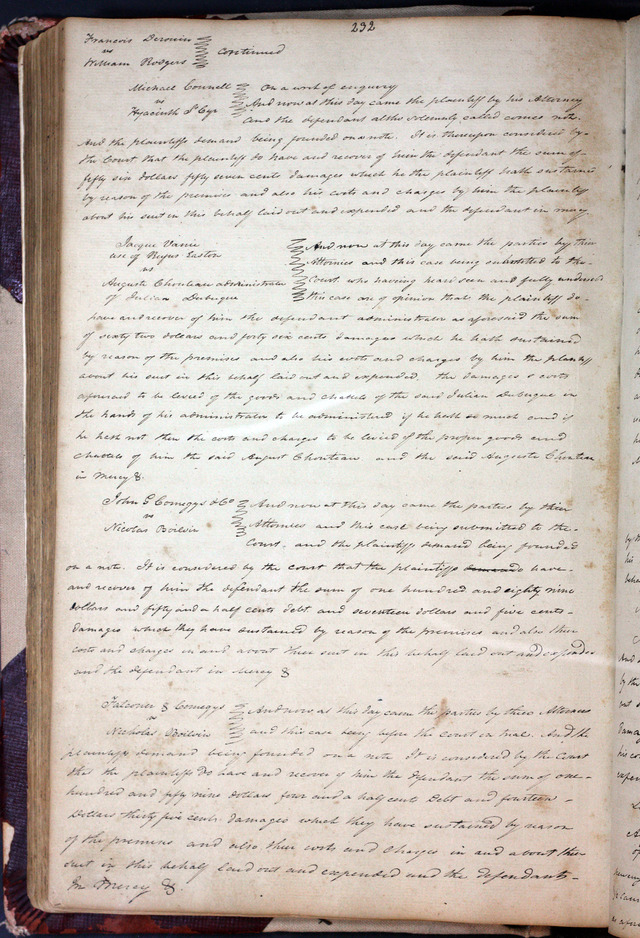 232
Francois Derouin
vs
William Rodgers
Continued
Michael Connell
vs
Hyacinth St Cyr
On a writ of enquiry
And now at this day came the plaintiff by his Attorney
and the defendant altho solemnly called comes not.
And the plaintiffs demand being founded on a note. It is thereupon considered by
the Court that the plaintiff do have and recover of him the defendant the sum of
fifty six dollars fifty seven cents damages which he the plaintiff hath sustained
by reason of the premises and also his costs and charges by him the plaintiff
about his suit in this behalf laid out and expended and the defendant in mercy
Jacque
use of Rufus Easton
vs
Auguste Chouteau administrator
of Julian Dubuque
And now at this day came the parties by their
Attornies and this case being submitted to the
Court. who having heard seen and fully understood
this case are of opinion that the plaintiff do
have and recover of him the defendant administrator as aforesaid the sum
of sixty two dollars and forty six cents damages which he hath sustained
by reason of the premises and also his costs and charges by him the plaintiff
about his suit in this behalf laid out and expended, the damages & costs
aforesaid to be levied of the goods and chattels of the said Julian Dubuque in
the hands of his administrator to be administered if he hath so much and if
he hath not then the costs and charges to be levied of the proper goods and
chattels of him the said August Chouteau and the said Auguste Chouteau
in mercy &.
John G Comegys & Co
vs
Nicolas Boilvin
And now at this day came the parties by their
Attornies and this case being submitted to the
Court. and the plaintiffs demand being founded
on a note. It is considered by the court that the plaintiffs demand do have
and recover of him the defendant the sum of one hundred and eighty nine
dollars and fifty and a half cents debt and seventeen dollars and five cents
damages which they have sustained by reason of the premises and also their
costs and charges in and about their suit in this behalf laid out and expended
and the defendant in mercy &
Falconer & Comegys
vs
Nicholas Boilvin
And now at this day came the parties by their Attornies
and this case being before the court on trial. And the
plaintiffs demand being founded on a note It is considered by the Court
that the plaintiffs do have and recover of him the defendant the sum of one
hundred and fifty nine dollars four and a half cents Debt and fourteen
Dollars thirty five cents damages which they have sustained by reason
of the premises and also their costs and charges in and about their
suit in this behalf laid out and expended and the defendant
In Mercy &.